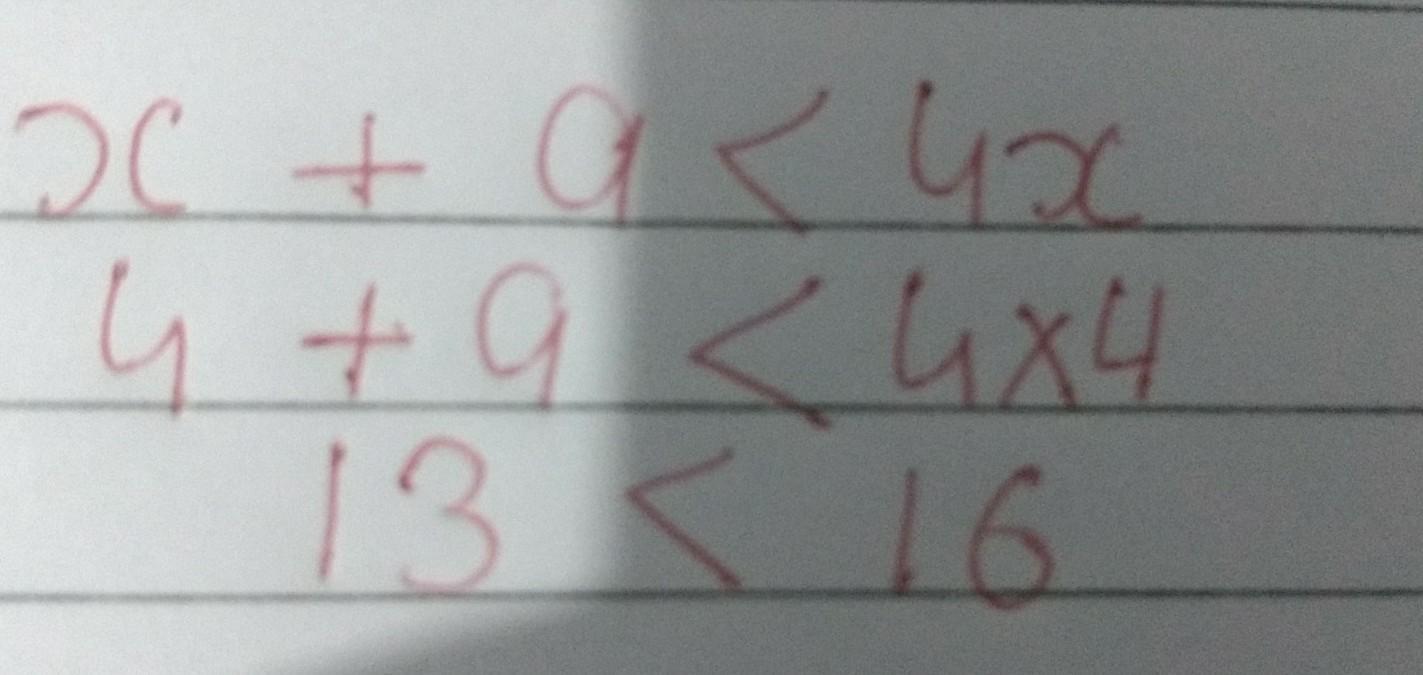 x + 9 < 4x
4 + 9 < 4x4
13 < 16